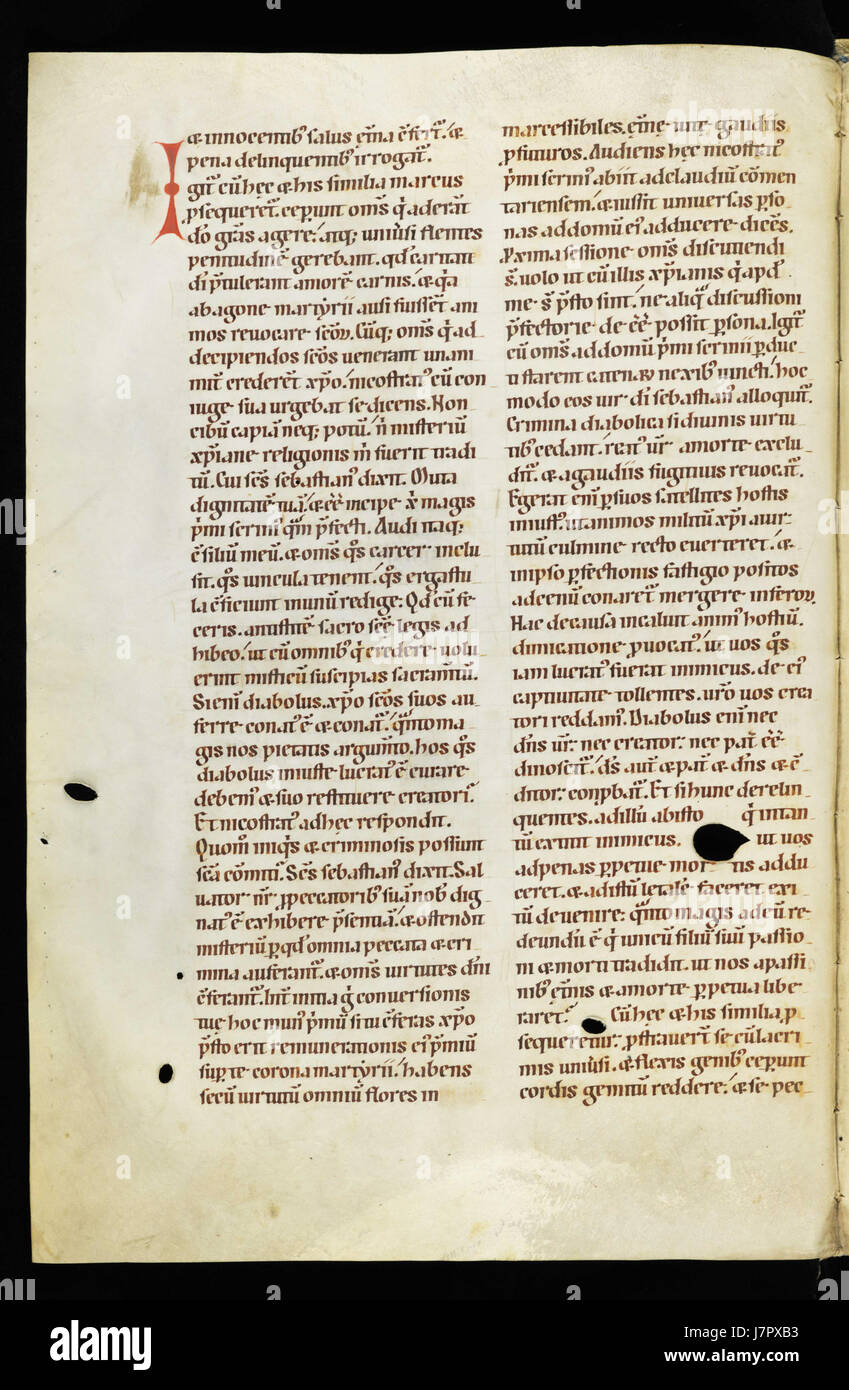 & innocentib; salus et̄na c̄fert᷑. &
pena delinquentib; irrogat᷑.
Igit᷑ cū hęc & his similia marcus
ꝓsequeret᷑. ceperunt om̄s q̇ aderāt
dō gr̄as agere. atq; uniūsi flentes
penitudinē gerebant. qd̓ caritati
di p̄tulerant amorē carnis. & q̇a
ab agone martẏrii ausi fuissēt ani
mos revocare sc̄oꝝ. Cūq; om̄s q̇ ad
decipiendos sc̄os uenerant unani
mit̄ crederēt xp̄o. nicostrat᷒ cū con
iuge sua urgebat se dicens. Non
cibū capiā neq; potū. n̄ misteriū
xp̄iane religionis m̄ fuerit tradi
tū. Cui sc̄s sebastian᷒ dixit. Muta
dignitatē tuā. & ēē incipe xp̄i magis
p̄mi scrini᷒ q̄m p̄fecti. Audi itaq;
c̄siliū meū. & om̄s q̊s carcer inclu
sit. q̊s uincula tenent. q̊s ergastu
la c̄ficiunt in unū redige. Qd̓ cū fe
ceris. antistitē sacro sc̄ē legis ad
hibeo. ut cū omnib; q̇ credere uolu
erint misticū suscipias sacram̄tū.
Si eni᷒ diabolus. xp̄o sc̄os suos au
ferre conat᷒ ē & conat᷑. q̄nto ma
gis nos pietatis argum̄to. hos q̊s
diabolus iniuste lucrat᷒ ē curare
debem᷒ & suo restituere creatori.
Et nicostrat᷒ ad hęc respondit.
Quom̊ iniq̊s & criminosis possunt
sc̄a cōmitti. Sc̄s sebastian᷒ dixit. Sal
uator nr̄ ꝓ peccatorib; suā nob̓ dig
nat᷒ ē exhibere p̄sentiā. & ostendit
misteriū ꝑ qd̓ omnia peccata & cri
mina auferant᷑. & om̄s uirtutes dn̄i
c̄ferant᷑. Int̄ initia g̊ conuersionis
tuę hoc mun᷒ p̄mū si tu c̄feras xp̄o
p̄sto erit remunerationis ei᷒ p̄miū
sup̄ te corona martẏrii. habens
secū uirtutū omniū flores in
marcessibiles. et̄nę uitę gaudiis
ꝓfuturos. Audiens hęc nicostrat᷒
p̄mi scrini᷒ abiit ad claudiū cōmen
tariensem. & iussit uniuersas ꝑso
nas ad domū ei᷒ adducere dicēs.
Proxima sessione om̄s discutiendi
s̄. uolo ut cū illis xp̄ianis q̇ apd̓
me s̄ p̄sto sint. ne aliq̊ discussioni
p̄fectorię deēē possit ꝑsona. Igit᷑
cū om̄s ad domū p̄mi scrinii ꝑduc
ti starent catenaꝝ nexib; iuncti. hoc
modo eos uir di sebastian᷒ alloquit᷑.
Crimina diabolica si diuinis uirtu
tib; cedant. reat᷒ ur̄ a morte exclu
dit᷑. & a gaudiis fugitiuus revocat᷑.
Egerat eni᷒ ꝑ suos satellites hostis
iniust᷒. ut animos militū xp̄i a uir
tutū culmine recto euerteret. &
in ipso ꝑfectionis fastigio positos
ad cenū conaret᷑ mergere inferoꝝ.
Hac de causa incaluit anim᷒ hostiū.
dimicatione ꝓuocat᷒. ut uos q̊s
iam lucrat᷒ fuerat inimicus. de ei᷒
captiuitate tollentes. ur̄o uos crea
tori reddam᷒. Diabolus eni᷒ nec
dn̄s ur̄. nec creator. nec pat̄ ēē
dinoscit᷑. Ds̄ aut̄ & pat̄ & dn̄s & c̄
ditor cōꝓbat᷑. Et si hunc derelin
quentes. ad illū abistis q̇ in tan
tū extitit inimicus. ut uos
ad penas ꝑpetuę mortis addu
ceret. & ad istū letalē faceret exi
tū deuenire. q̄nto magis ad eū re
deundū ē q̇ unicū filiū suū passio
ni & morti tradidit. ut nos a passi
nib; et̄nis & a morte ꝑpetua libe
raret᷑. Cū hęc & his similia ꝓ
sequeretur. ꝓstrauert̄ se cū lacri
mis uniūsi. & flexis genib; ceperunt
cordis gemitū reddere. & se pec